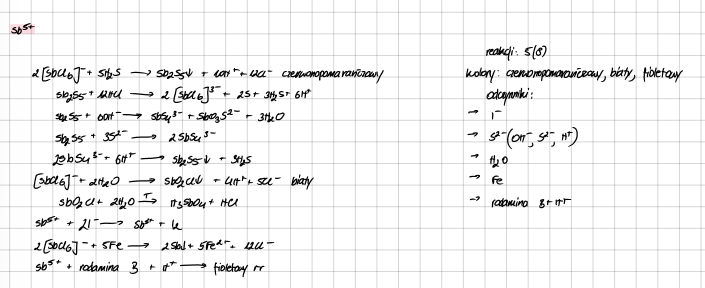 Sb⁵⁺
2[SbCl₆]⁻ + 5H₂S → Sb₂S₅↓ + 10H⁺ + 12Cl⁻ czerwonopomarańczowy
Sb₂S₅ + 12HCl → 2[SbCl₆]³⁻ + 2S + 3H₂S + 6H⁺
Sb₂S₅ + 6OH⁻ → SbS₄³⁻ + SbO₃S³⁻ + 3H₂O
Sb₂S₅ + 3S²⁻ → 2SbS₄³⁻
2SbS₄³⁻ + 6H⁺ → Sb₂S₅↓ + 3H₂S
[SbCl₆]⁻ + 2H₂O → SbO₂Cl↓ + 4H⁺ + 5Cl⁻ biały
SbO₂Cl + 2H₂O →ᵀ H₃SbO₄ + HCl
Sb⁵⁺ + 2I⁻ → Sb³⁺ + I₂
2[SbCl₆]⁻ + 5Fe → 2Sb↓ + 5Fe²⁺ + 12Cl⁻
Sb⁵⁺ + rodamina B + H⁺ → fioletowy rr
reakcji: 5(8)
kolory: czerwonopomarańczowy, biały, fioletowy
odczynniki:
→ I⁻
→ S²⁻ (OH⁻, S²⁻, H⁺)
→ H₂O
→ Fe
→ rodamina B + H⁺